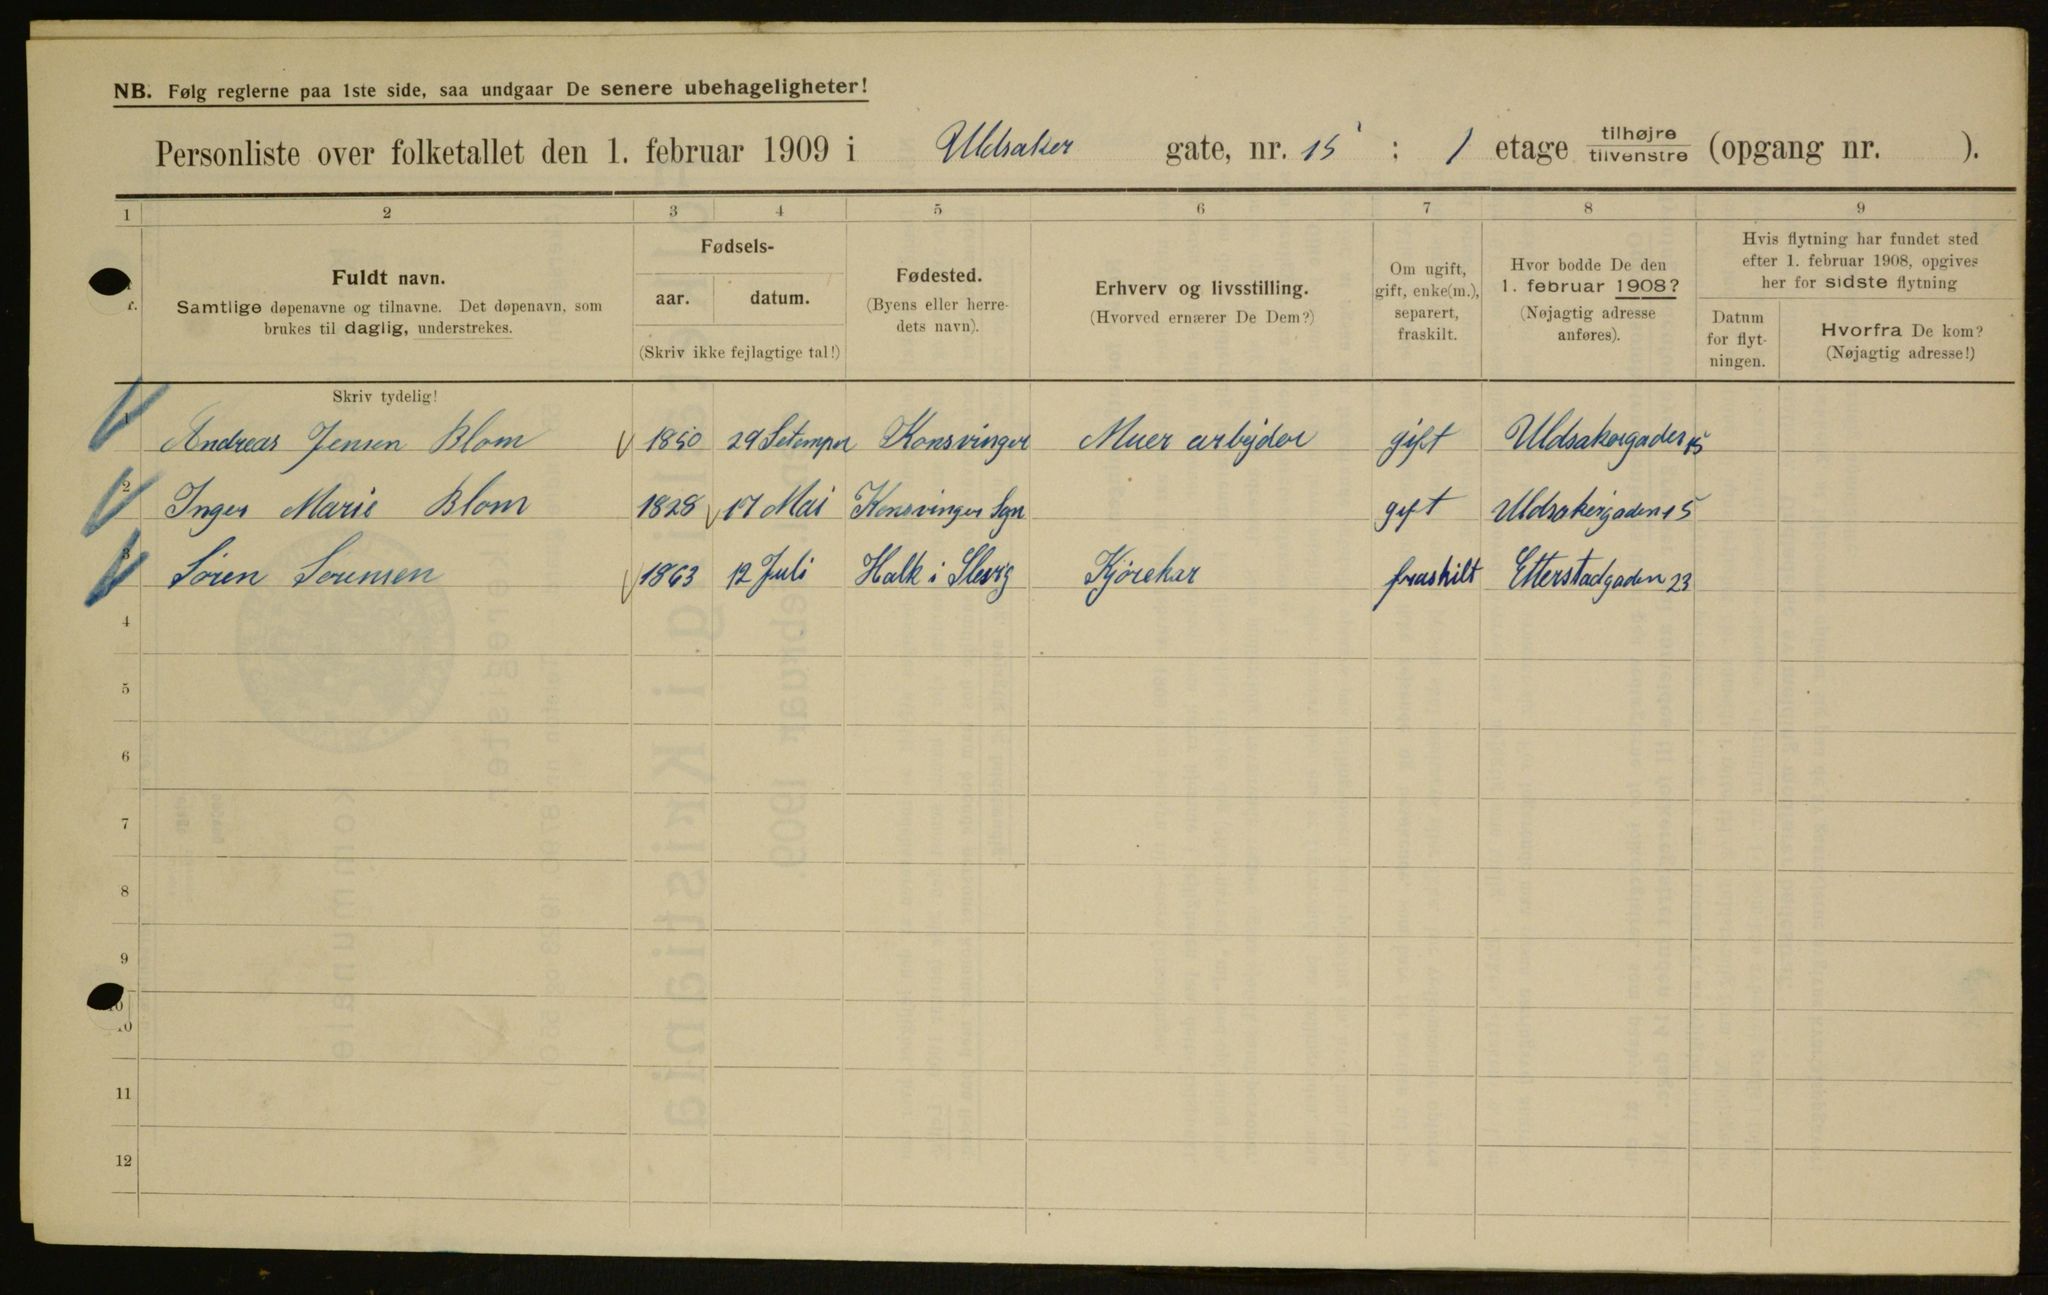 NB. Følg reglerne paa 1ste side, saa undgaar De senere ubehageligheter!
Personliste over folketallet den 1. februar 1909 i Uldsaker gate, nr. 15 : 1 etage tilhøjre tilvenstre (opgang nr. ).
1 2 3 4 5 6 7 8 9
Fuldt navn.
Samtlige døpenavne og tilnavne. Det døpenavn, som
brukes til daglig, understrekes.
Fødsels-
aar. datum.
(Skriv ikke fejlagtige tal!)
Fødested.
(Byens eller herre-
dets navn).
Erhverv og livsstilling.
(Hvorved ernærer De Dem?)
Om ugift,
gift, enke(m.),
separert,
fraskilt.
Hvor bodde De den
1. februar 1908?
(Nøjagtig adresse
anføres).
Hvis flytning har fundet sted
efter 1. februar 1908, opgives
her for sidste flytning
Datum
for flyt-
ningen.
Hvorfra De kom?
(Nøjagtig adresse!)
Skriv tydelig!
1 Andreas Jensen Blom 1850 29 Setemper Konsvinger Muer arbejder gift Uldsakergaden 15
2 Inger Marie Blom 1828 17 Mai Konsvinger Sgn gift Uldsakergaden 15
3 Sören Sörensen 1863 12 Juli Halk i Slesvig Kjörekar fraskilt Etterstadgaden 23
4
5
6
7
8
9
10
10
11
12